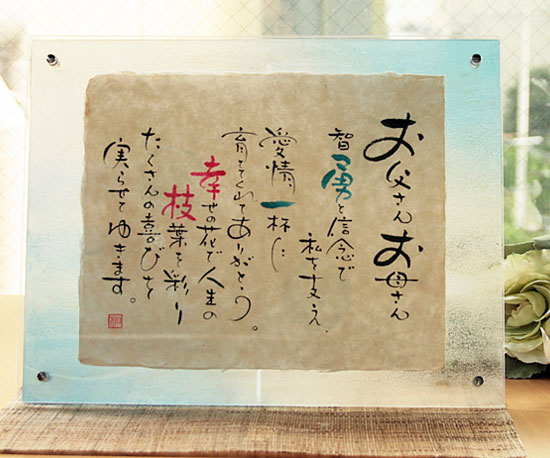 お父さん お母さん
智勇と信念で
私を支え、
愛情一杯に
育ててくれてありがとう。
幸せの花で人生の
枝葉を彩り
たくさんの喜びを
実らせてゆきます。